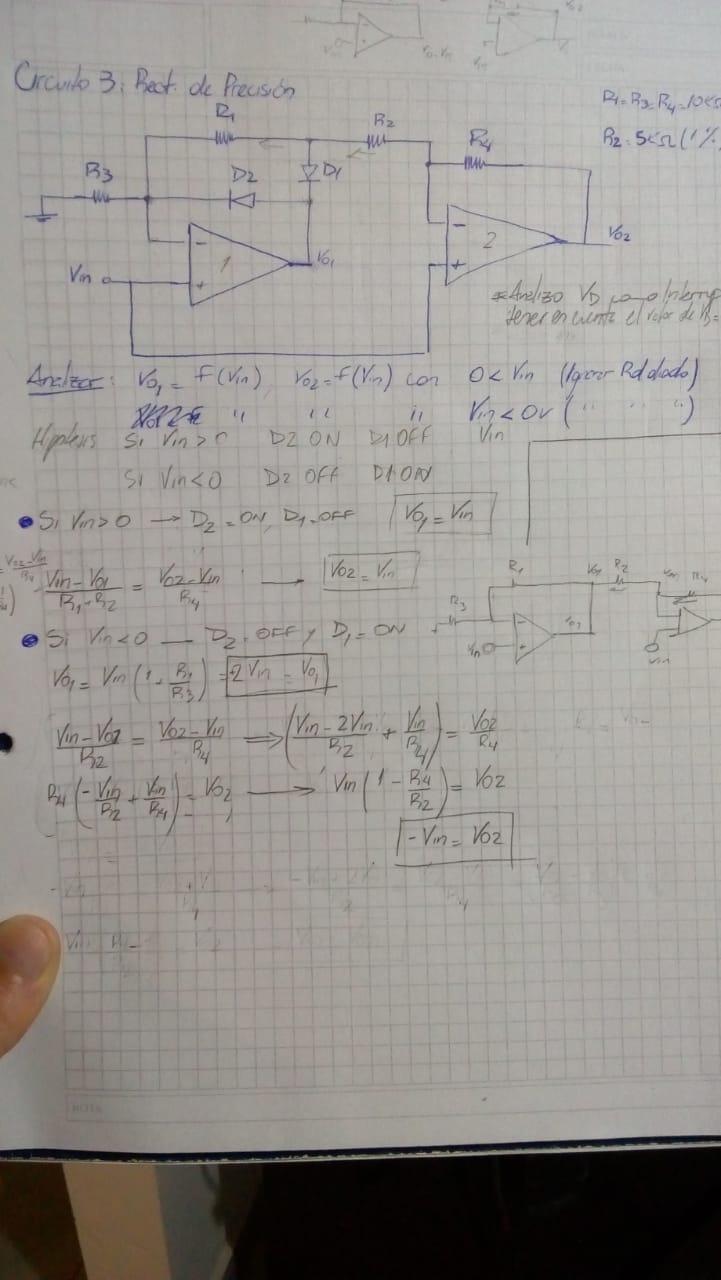 Circuito 3: Rect. de Precisión
R1=R3=R4=10KΩ
R2=5KΩ (1%
R1
R2
R4
R3
D2
D1
Vin
1
Vo1
2
Vo2
-
+
-
+
*Analizo VD como Interrup
tener en cuenta el valor de
Analizar: Vo1 = f(Vin), Vo2 = f(Vin) con 0 < Vin (Ignorar Rd diodo)
" " " Vin < 0v ( " " " )
Hipótesis Si Vin > 0 D2 ON D1 OFF Vin
Si Vin < 0 D2 OFF D1 ON
Si Vin > 0 → D2 = ON, D1 = OFF Vo1 = Vin
Vin-Vo1/R1+R2 = Vo2-Vin/R4 → Vo2 = Vin
Si Vin < 0 — D2 = OFF y D1 = ON
R1
R2
R3
Vo1
Vin
Vo1 = Vin (1 + R1/R3) = 2Vin = Vo1
Vin-Vo1/R2 = Vo2-Vin/R4 ⟹ (Vin-2Vin/R2 + Vin/R4) = Vo2/R4
R4 (-Vin/R2 + Vin/R4) = Vo2 → Vin (1 - R4/R2) = Vo2
-Vin = Vo2